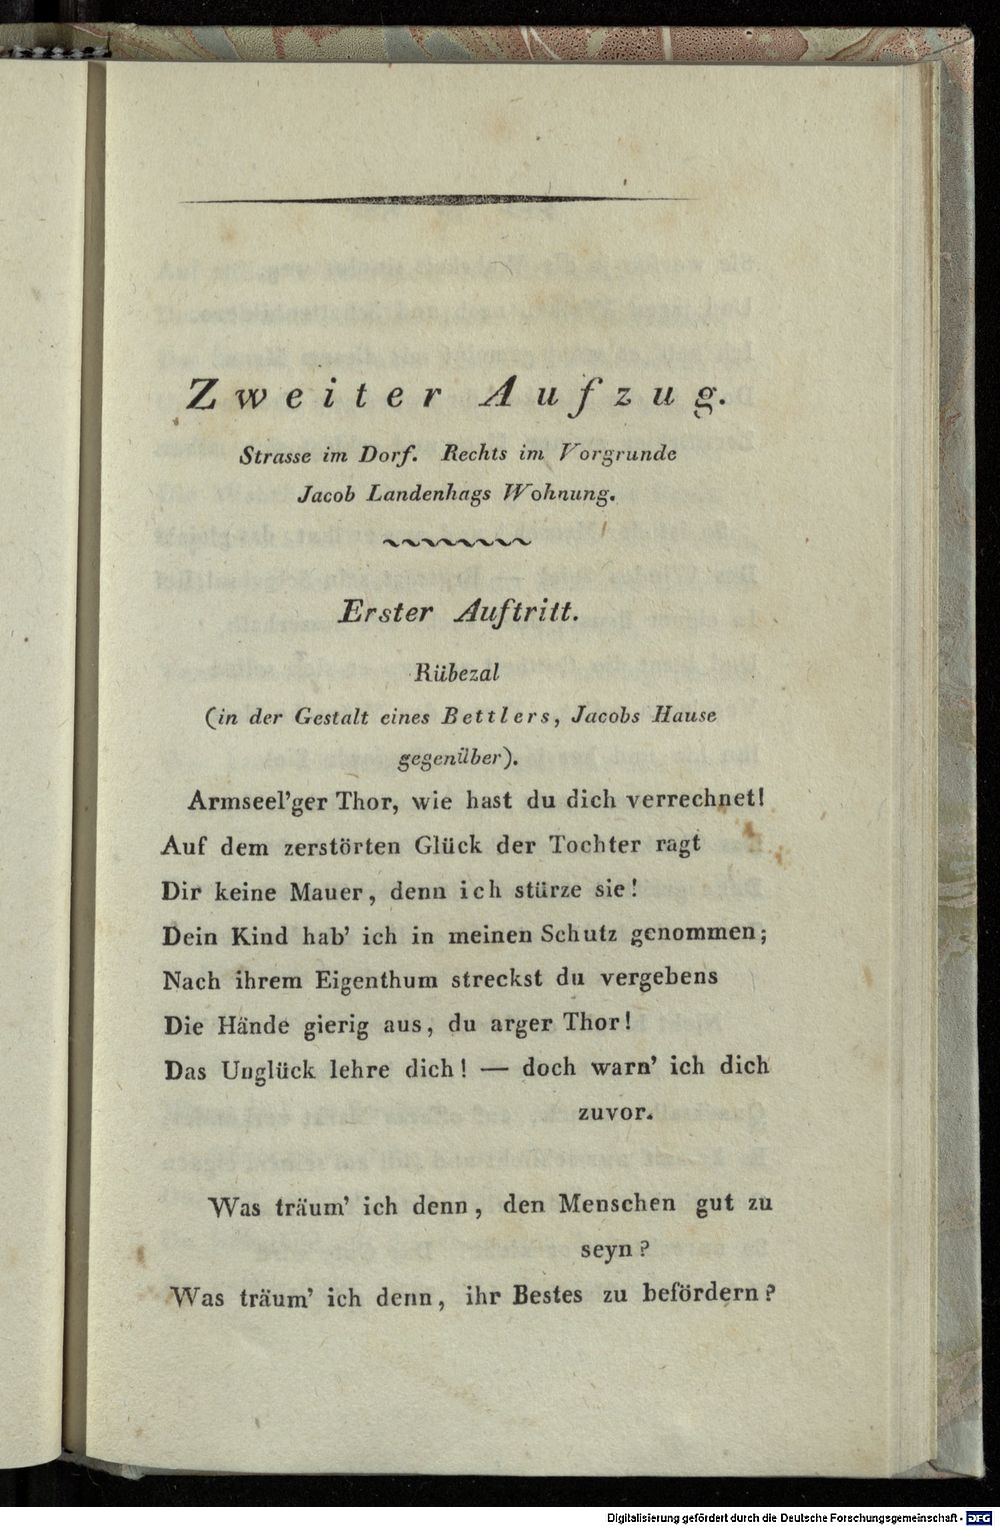 Zweiter Aufzug.
Strasse im Dorf. Rechts im Vorgrunde
Jacob Landenhags Wohnung.
Erster Auftritt.
Rübezal
(in der Gestalt eines Bettlers, Jacobs Hause
gegenüber).
Armseel'ger Thor, wie hast du dich verrechnet!
Auf dem zerstörten Glück der Tochter ragt
Dir keine Mauer, denn ich stürze sie!
Dein Kind hab' ich in meinen Schutz genommen;
Nach ihrem Eigenthum streckst du vergebens
Die Hände gierig aus, du arger Thor!
Das Unglück lehre dich! — doch warn' ich dich
zuvor.
Was träum' ich denn, den Menschen gut zu
seyn?
Was träum' ich denn, ihr Bestes zu befördern?
Digitalisierung gefördert durch die Deutsche Forschungsgemeinschaft - DFG